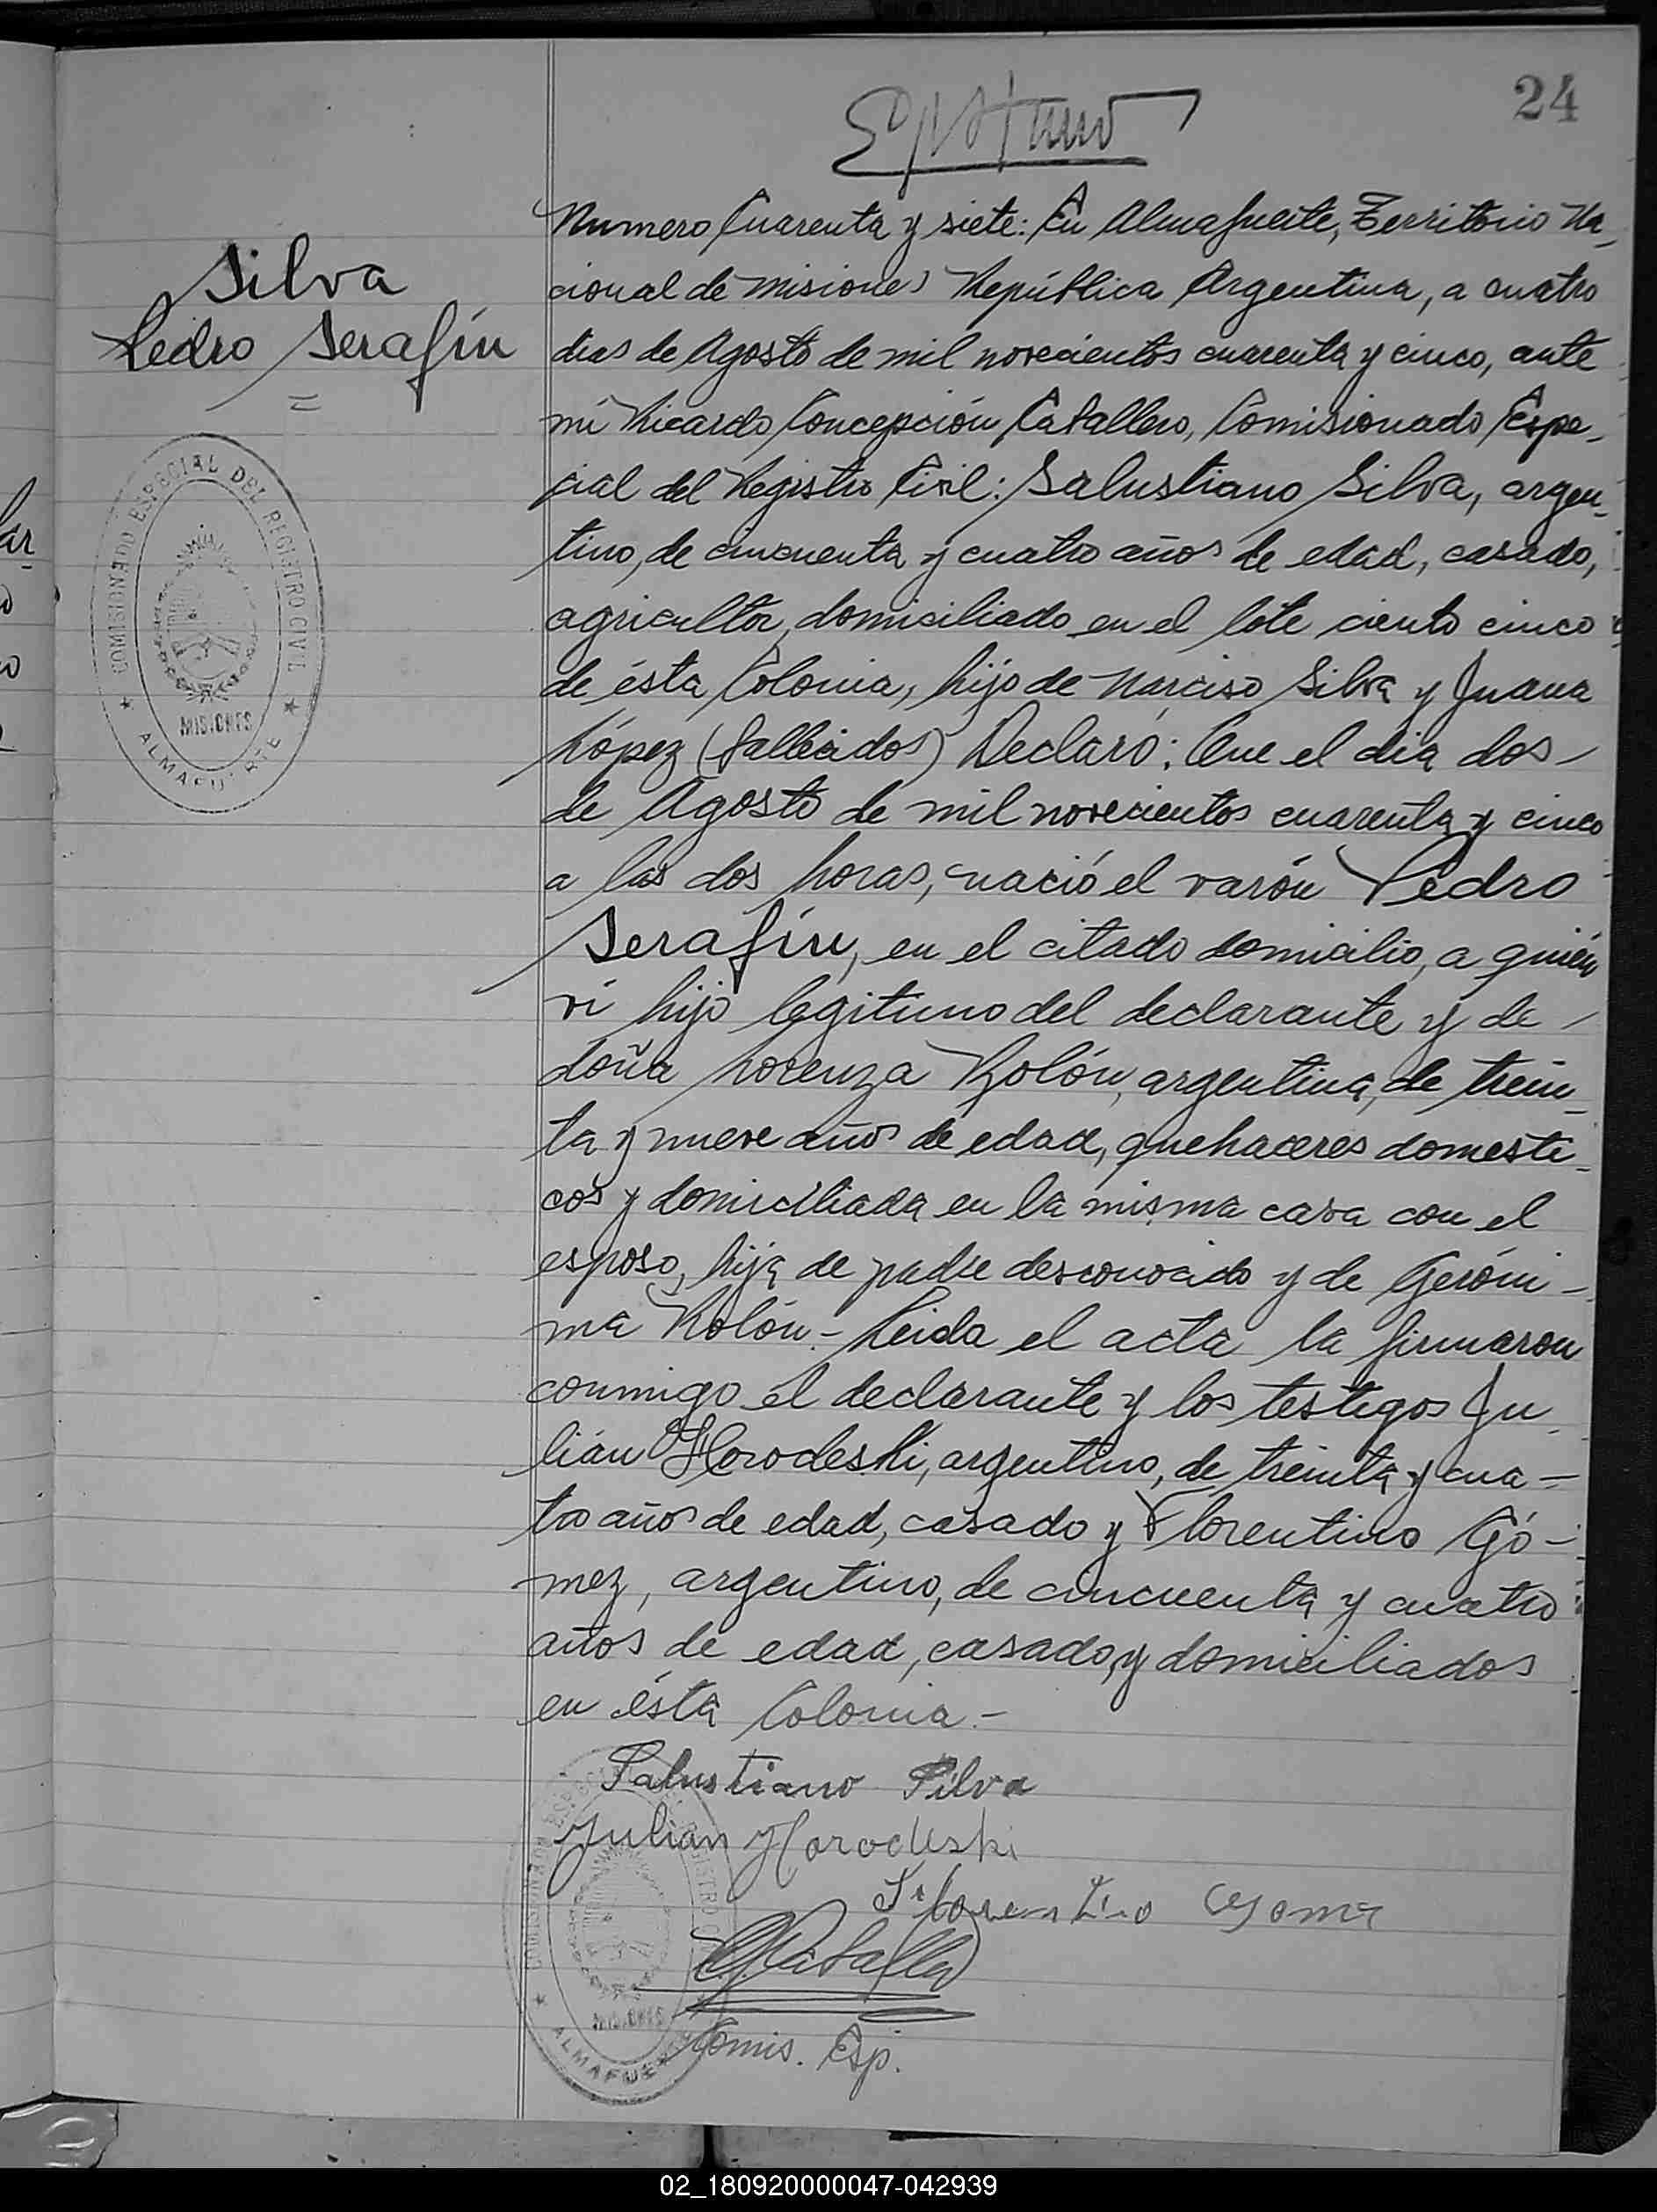 24
Silva
Pedro Serafín
=
COMISIONADO ESPECIAL DEL REGISTRO CIVIL
MISIONES
ALMAFUERTE
Numero Cuarenta y siete: En Almafuerte, Territorio Na_
cional de Misiones República Argentina, a cuatro
dias de Agosto de mil novecientos cuarenta y cinco, ante
mi Ricardo Concepción Caballero, Comisionado Espe_
cial del Registro Civil: Salustiano Silva, argen_
tino, de cincuenta y cuatro años de edad, casado,
agricultor, domiciliado en el lote ciento cinco
de ésta Colonia, hijo de Narciso Silva y Juana
López (fallecidos) Declaró: Que el dia dos
de Agosto de mil novecientos cuarenta y cinco
a las dos horas, nació el varón Pedro
Serafín, en el citado domicilio, a quién
ví hijo legitimo del declarante y de
doña Lorenza Rolón, argentina, de trein_
ta y nueve años de edad, quehaceres domesti_
cos y domiciliada en la misma casa con el
esposo, hija de padre desconocido y de Geróni-
ma Rolón.- Leida el acta la firmaron
conmigo el declarante y los testigos Ju_
lián Horodeski, argentino, de treinta y cua-
tro años de edad, casado y Florentino Gó-
mez, argentino, de cincuenta y cuatro
años de edad, casado, y domiciliados
en ésta Colonia.-
Salustiano Silva
Julian Horodeski
Florentino Gomez
Caballero
Comis. Esp.
COMISIONADO ESPECIAL DEL REGISTRO CIVIL
MISIONES
ALMAFUERTE
02_180920000047-042939